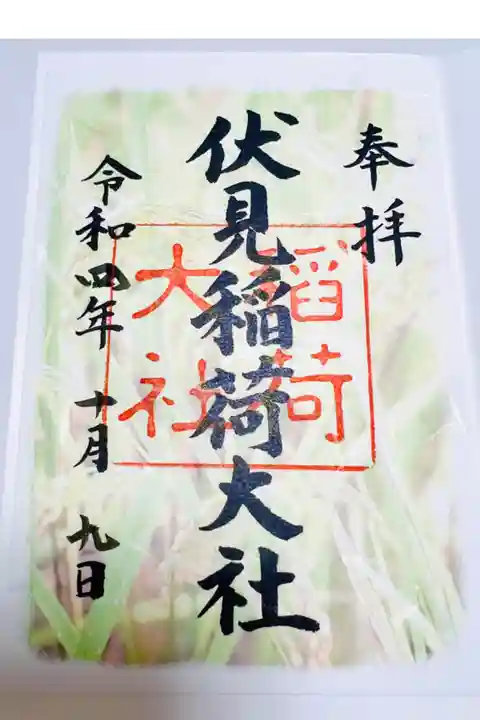 奉拝
伏見稲荷大社
稲荷
大社
令和四年 十月 九日